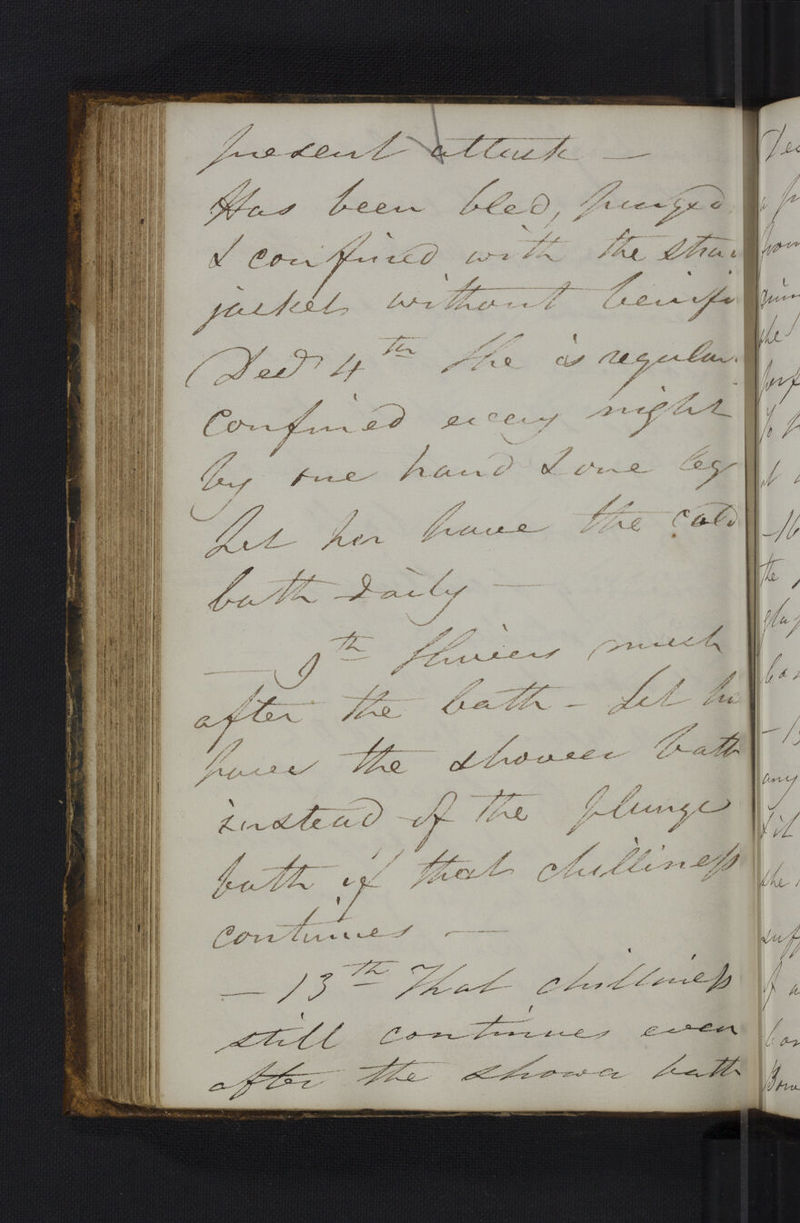 present attack —
Has been bled, purged
& confined with the stra
jacket without benifi
Decr 4th She is regular
confined every night
by one hand & one leg
Let her have the cold
bath daily —
— 9th Shivers much
after the bath - Let he
have the shower bath
instead of the plunge
bath if that chilliness
continues —
— 13th That chilliness
still continues even
after the shower bath